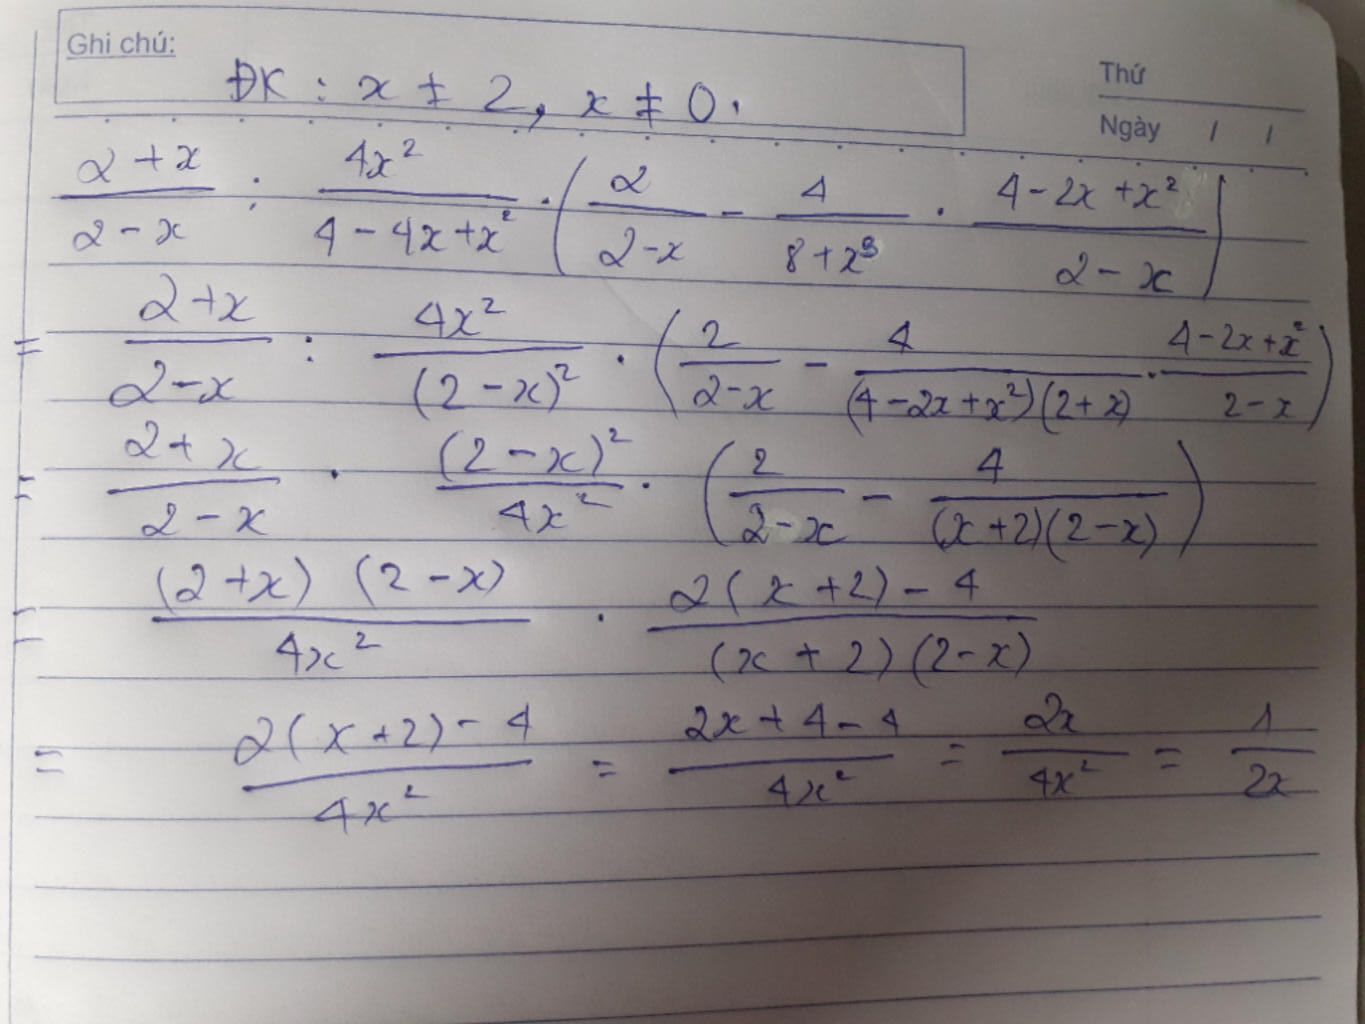 Ghi chú:
Thứ
ĐK : x ≠ 2, x ≠ 0.
Ngày / /
(2+x)/(2-x) : 4x²/(4-4x+x²) · (2/(2-x) - 4/(8+x³) · (4-2x+x²)/(2-x))
= (2+x)/(2-x) : 4x²/(2-x)² · (2/(2-x) - 4/((4-2x+x²)(2+x)) · (4-2x+x²)/(2-x))
= (2+x)/(2-x) · (2-x)²/4x² · (2/(2-x) - 4/((x+2)(2-x)))
= (2+x)(2-x)/4x² · (2(x+2)-4)/((x+2)(2-x))
= (2(x+2)-4)/4x² = (2x+4-4)/4x² = 2x/4x² = 1/2x